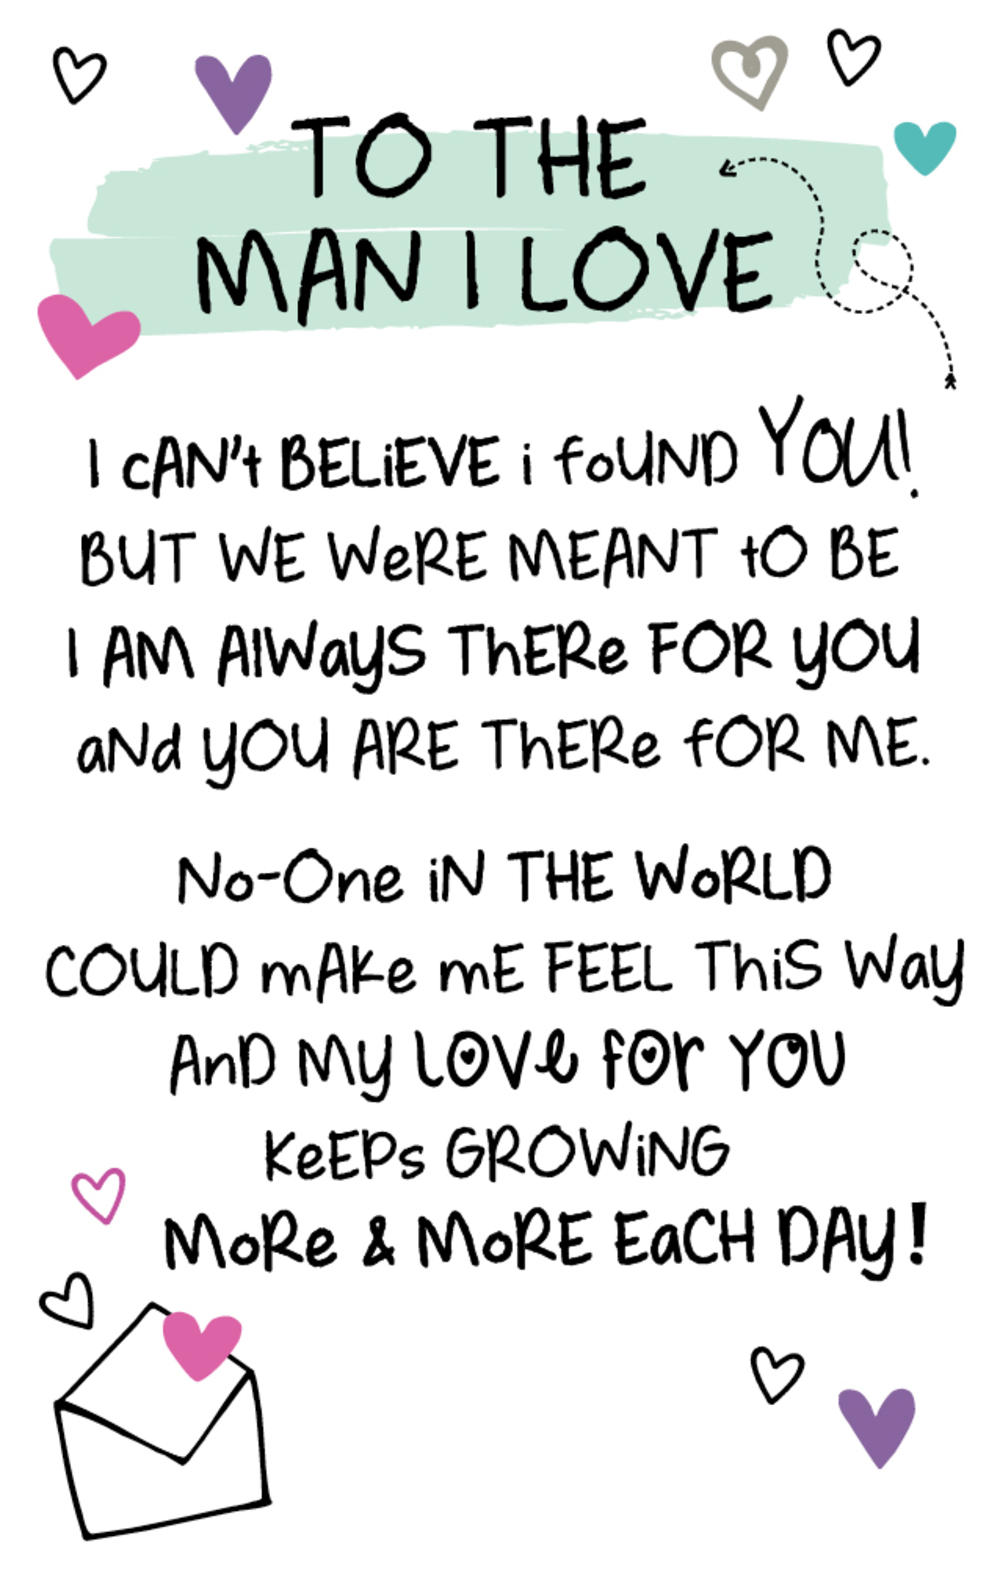 TO THE
MAN I LOVE
I cAN't BELiEVE i foUND YOU!
BUT WE WeRE MEANT tO BE
I AM AlWayS ThERe FOR yOU
aNd yOU ARE ThERe fOR ME.
No-One iN THE WoRLD
COULD mAKe mE FEEL ThiS Way
AnD My LOVe fOr YOU
KeEPs GROWiNG
MoRe & MoRE EaCH DAy!